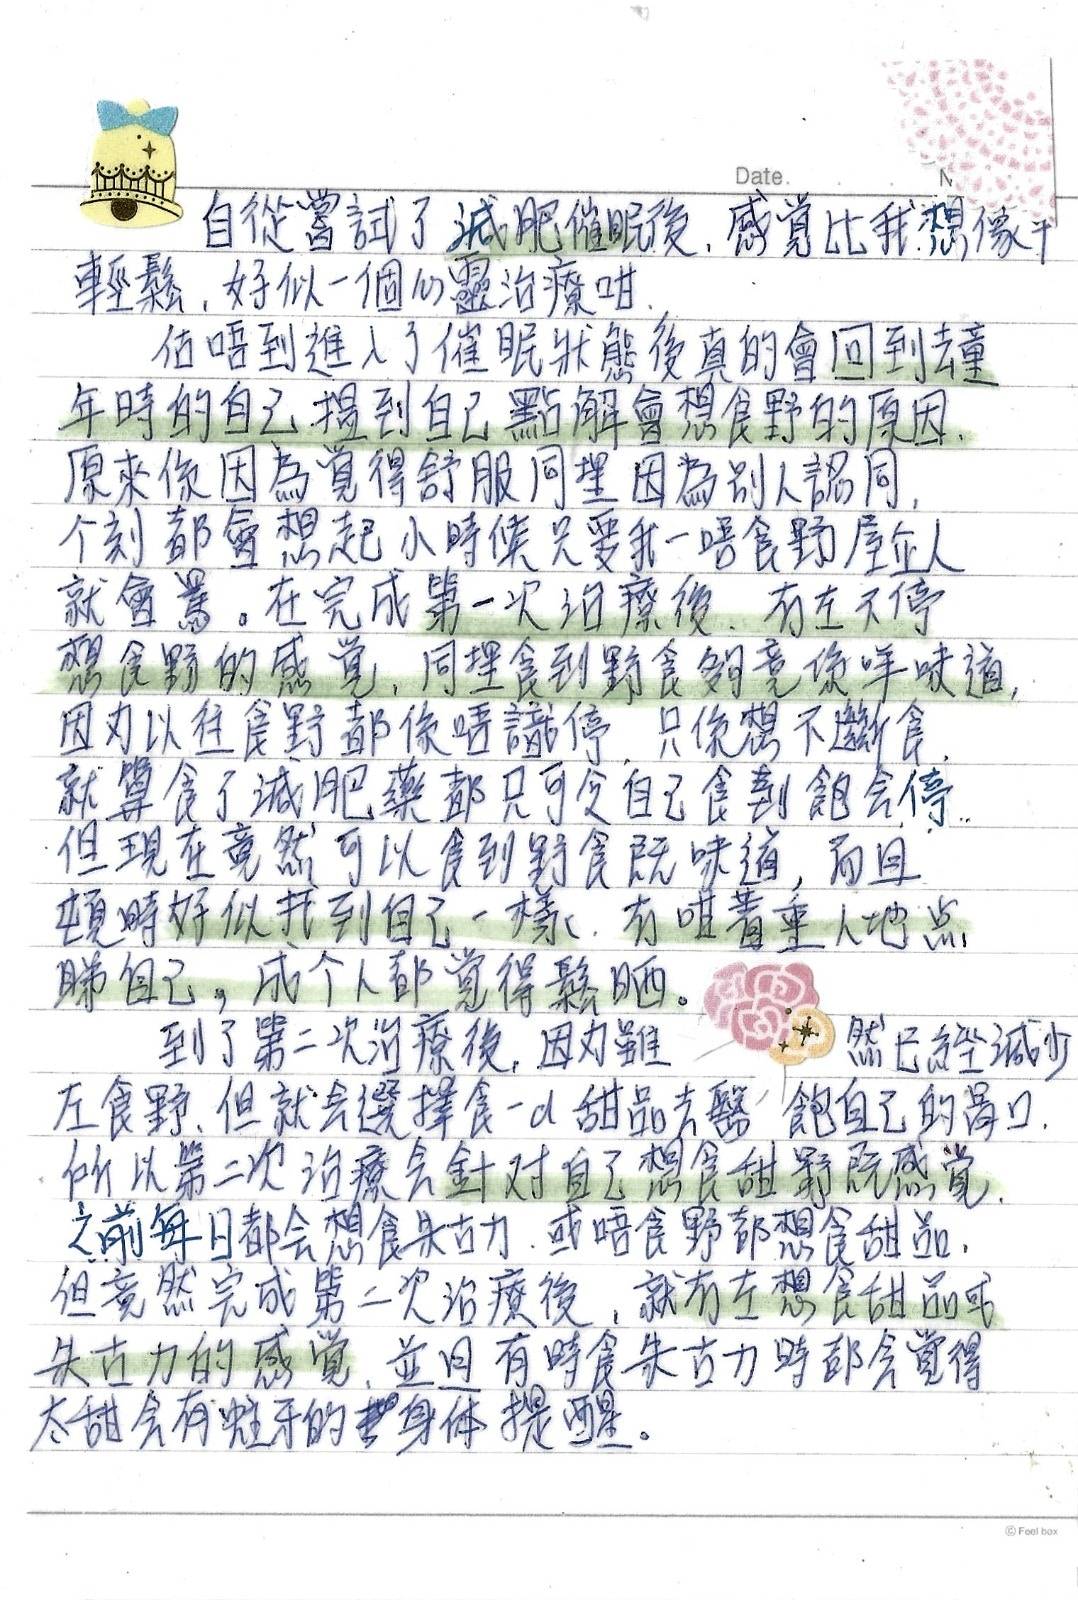 Date.
自從嘗試了減肥催眠後，感覚比我想像中
輕鬆，好似一個心靈治療咁.
估唔到進入了催眠狀態後真的會回到去童
年時的自己搵到自己點解會想食野的原因.
原來係因為覚得舒服同埋因為別人認同,
个刻都會想起小時候只要我一唔食野屋企人
就會罵。在完成第一次治療後、冇左不停
想食野的感覚, 同埋食到野食夠竟係咩味道,
因为以往食野都係唔識停, 只係想不斷食,
就算食了減肥藥都只可令自己食到飽会停.
但現在竟然可以食到野食既味道, 而且
頓時好似找到自己一樣、有咁著重人地点
睇自己, 成个人都覚得鬆晒。
到了第二次治療後, 因为雖然已経減少
左食野、但就会選擇食一d甜品去醫飽自己的胃口.
所以第二次治療会針对自己想食甜野既感覚.
之前每日都会想食朱古力.或唔食野都想食甜品.
但竟然完成第二次治療後, 就冇左想食甜品或
朱古力的感覚, 並且有時食朱古力時都会覚得
太甜会有蛀牙的身体提醒。
© Feel box